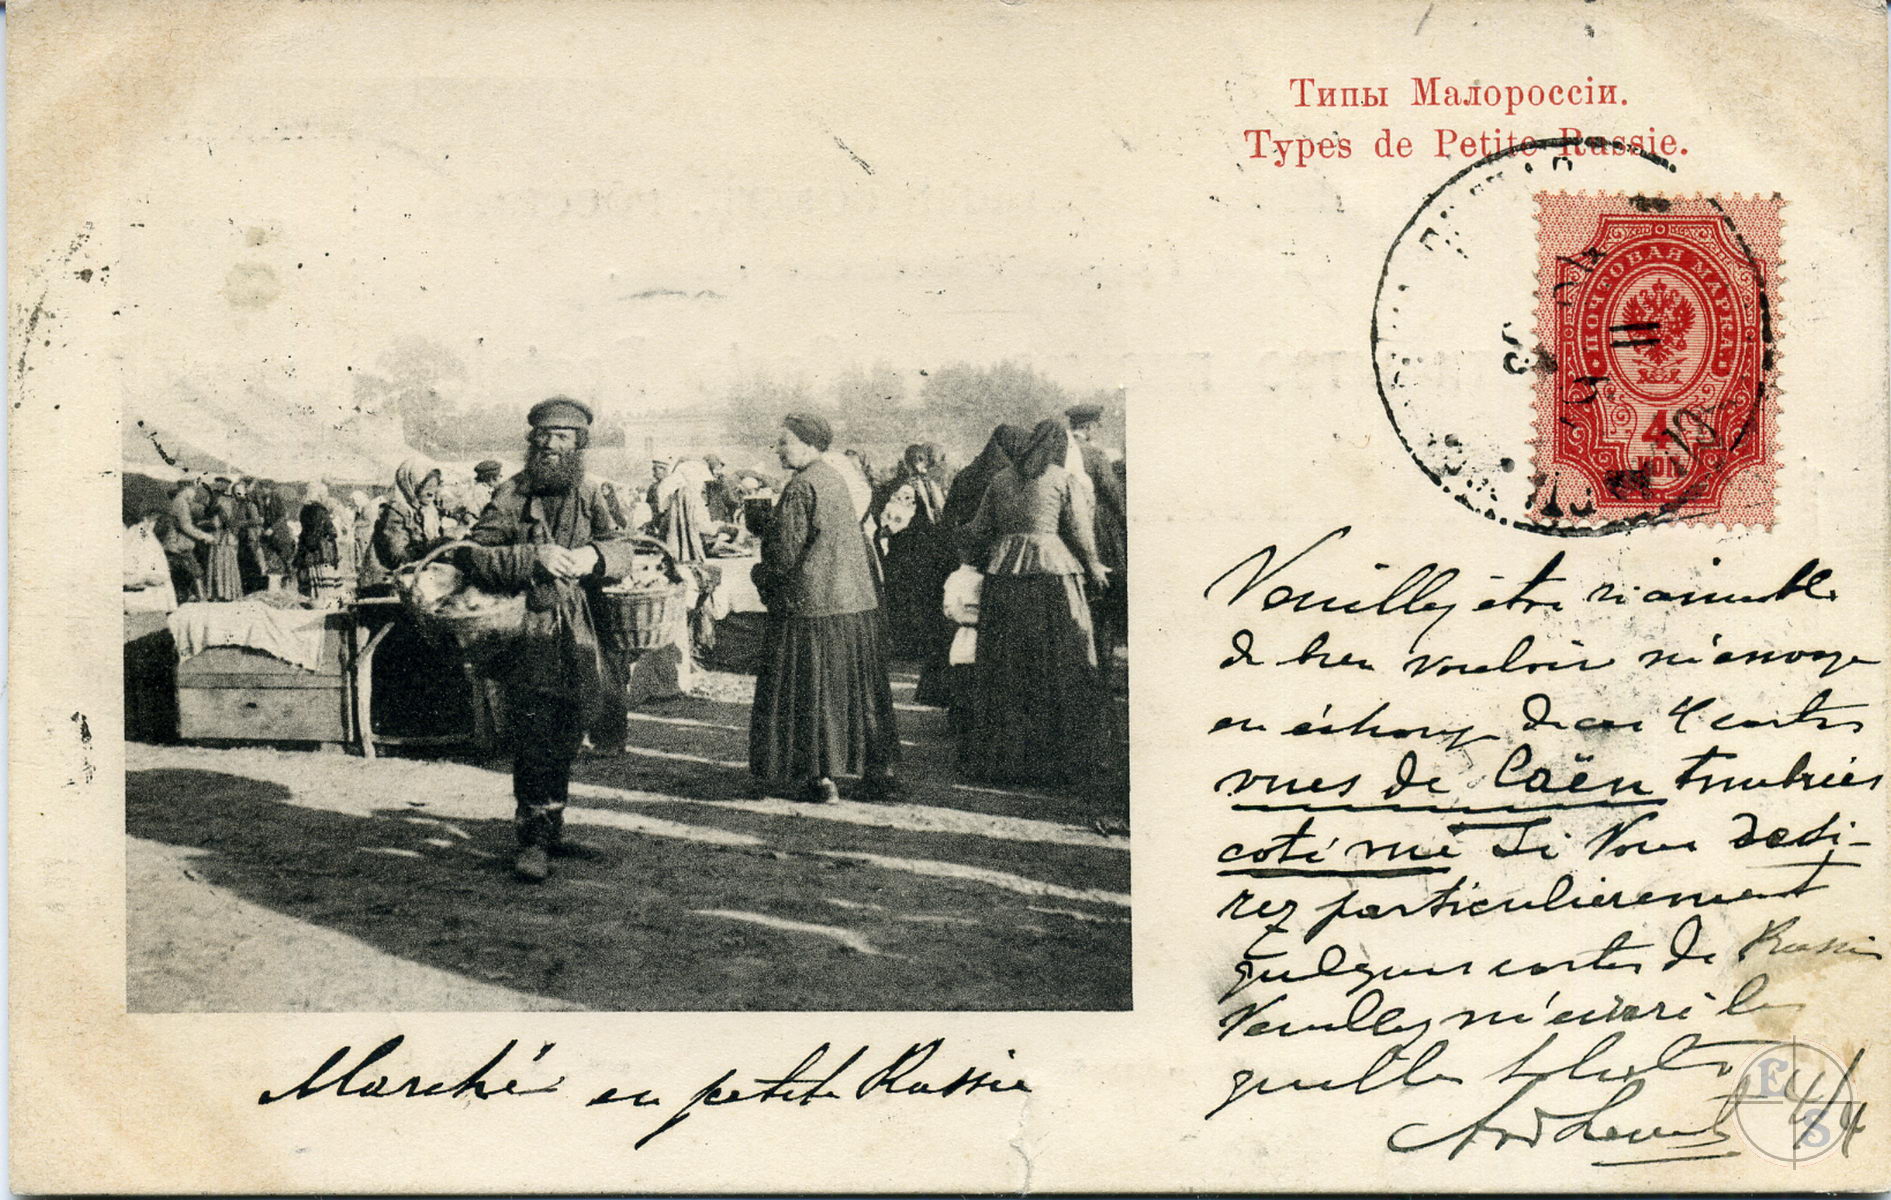 Типы Малороссіи.
Types de Petite Russie.
ПОЧТОВАЯ МАРКА
4
КОП
Veuillez être si aimable
de bien vouloir m'envoyer
en échange de ces 4 cartes
vues de Caën timbrées
coté vue Si Vous desi-
rez particulierement
quelques cartes de Russie
Veuillez m'écrire les
quelles
Marché en petite Russie
4/4
F
S